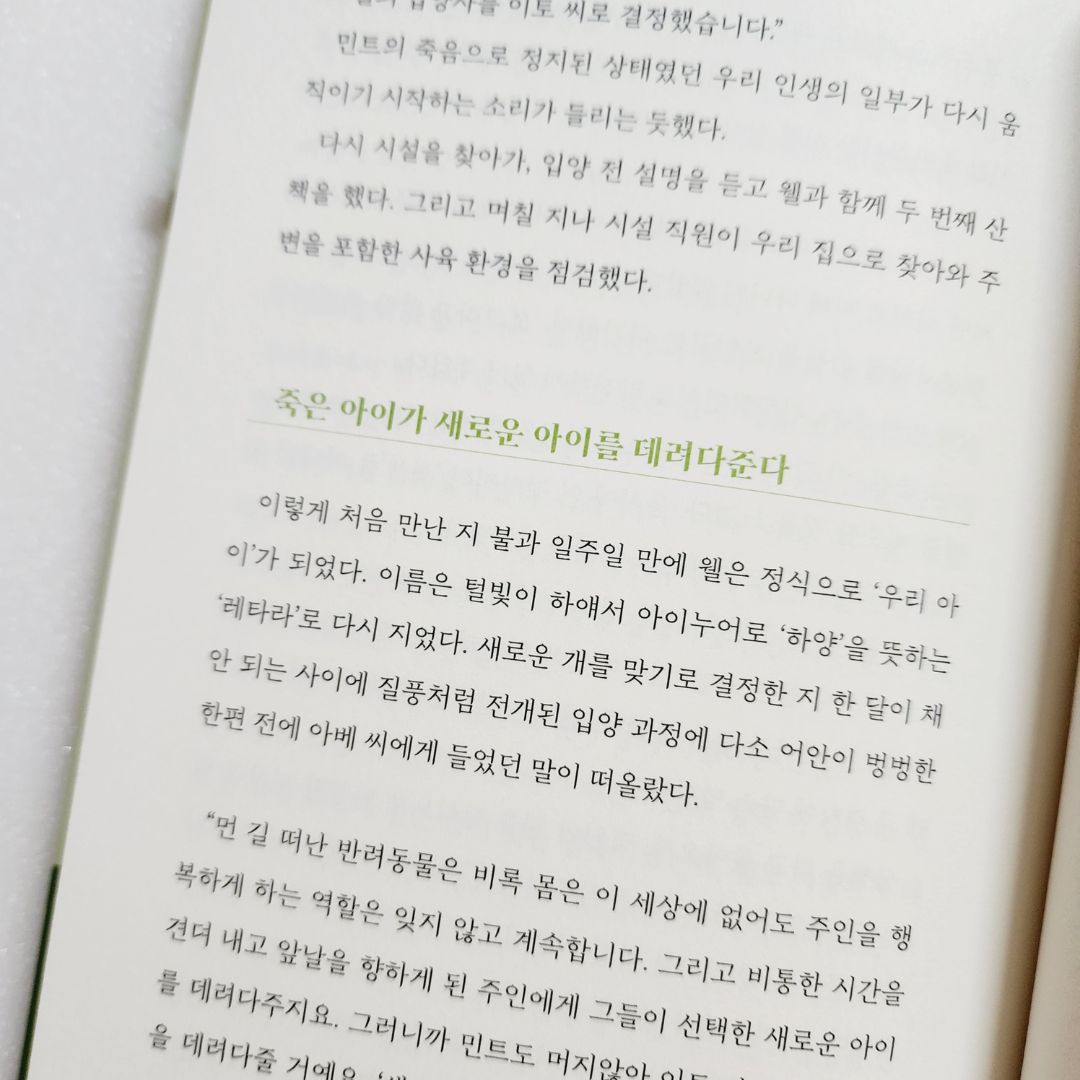 입양자를 이토 씨로 결정했습니다.”
민트의 죽음으로 정지된 상태였던 우리 인생의 일부가 다시 움
직이기 시작하는 소리가 들리는 듯했다.
다시 시설을 찾아가, 입양 전 설명을 듣고 웰과 함께 두 번째 산
책을 했다. 그리고 며칠 지나 시설 직원이 우리 집으로 찾아와 주
변을 포함한 사육 환경을 점검했다.
죽은 아이가 새로운 아이를 데려다준다
이렇게 처음 만난 지 불과 일주일 만에 웰은 정식으로 ‘우리 아
이’가 되었다. 이름은 털빛이 하얘서 아이누어로 ‘하양’을 뜻하는
‘레타라’로 다시 지었다. 새로운 개를 맞기로 결정한 지 한 달이 채
안 되는 사이에 질풍처럼 전개된 입양 과정에 다소 어안이 벙벙한
한편 전에 아베 씨에게 들었던 말이 떠올랐다.
“먼 길 떠난 반려동물은 비록 몸은 이 세상에 없어도 주인을 행
복하게 하는 역할은 잊지 않고 계속합니다. 그리고 비통한 시간을
견뎌 내고 앞날을 향하게 된 주인에게 그들이 선택한 새로운 아이
를 데려다주지요. 그러니까 민트도 머지않아
을 데려다줄 거예요.